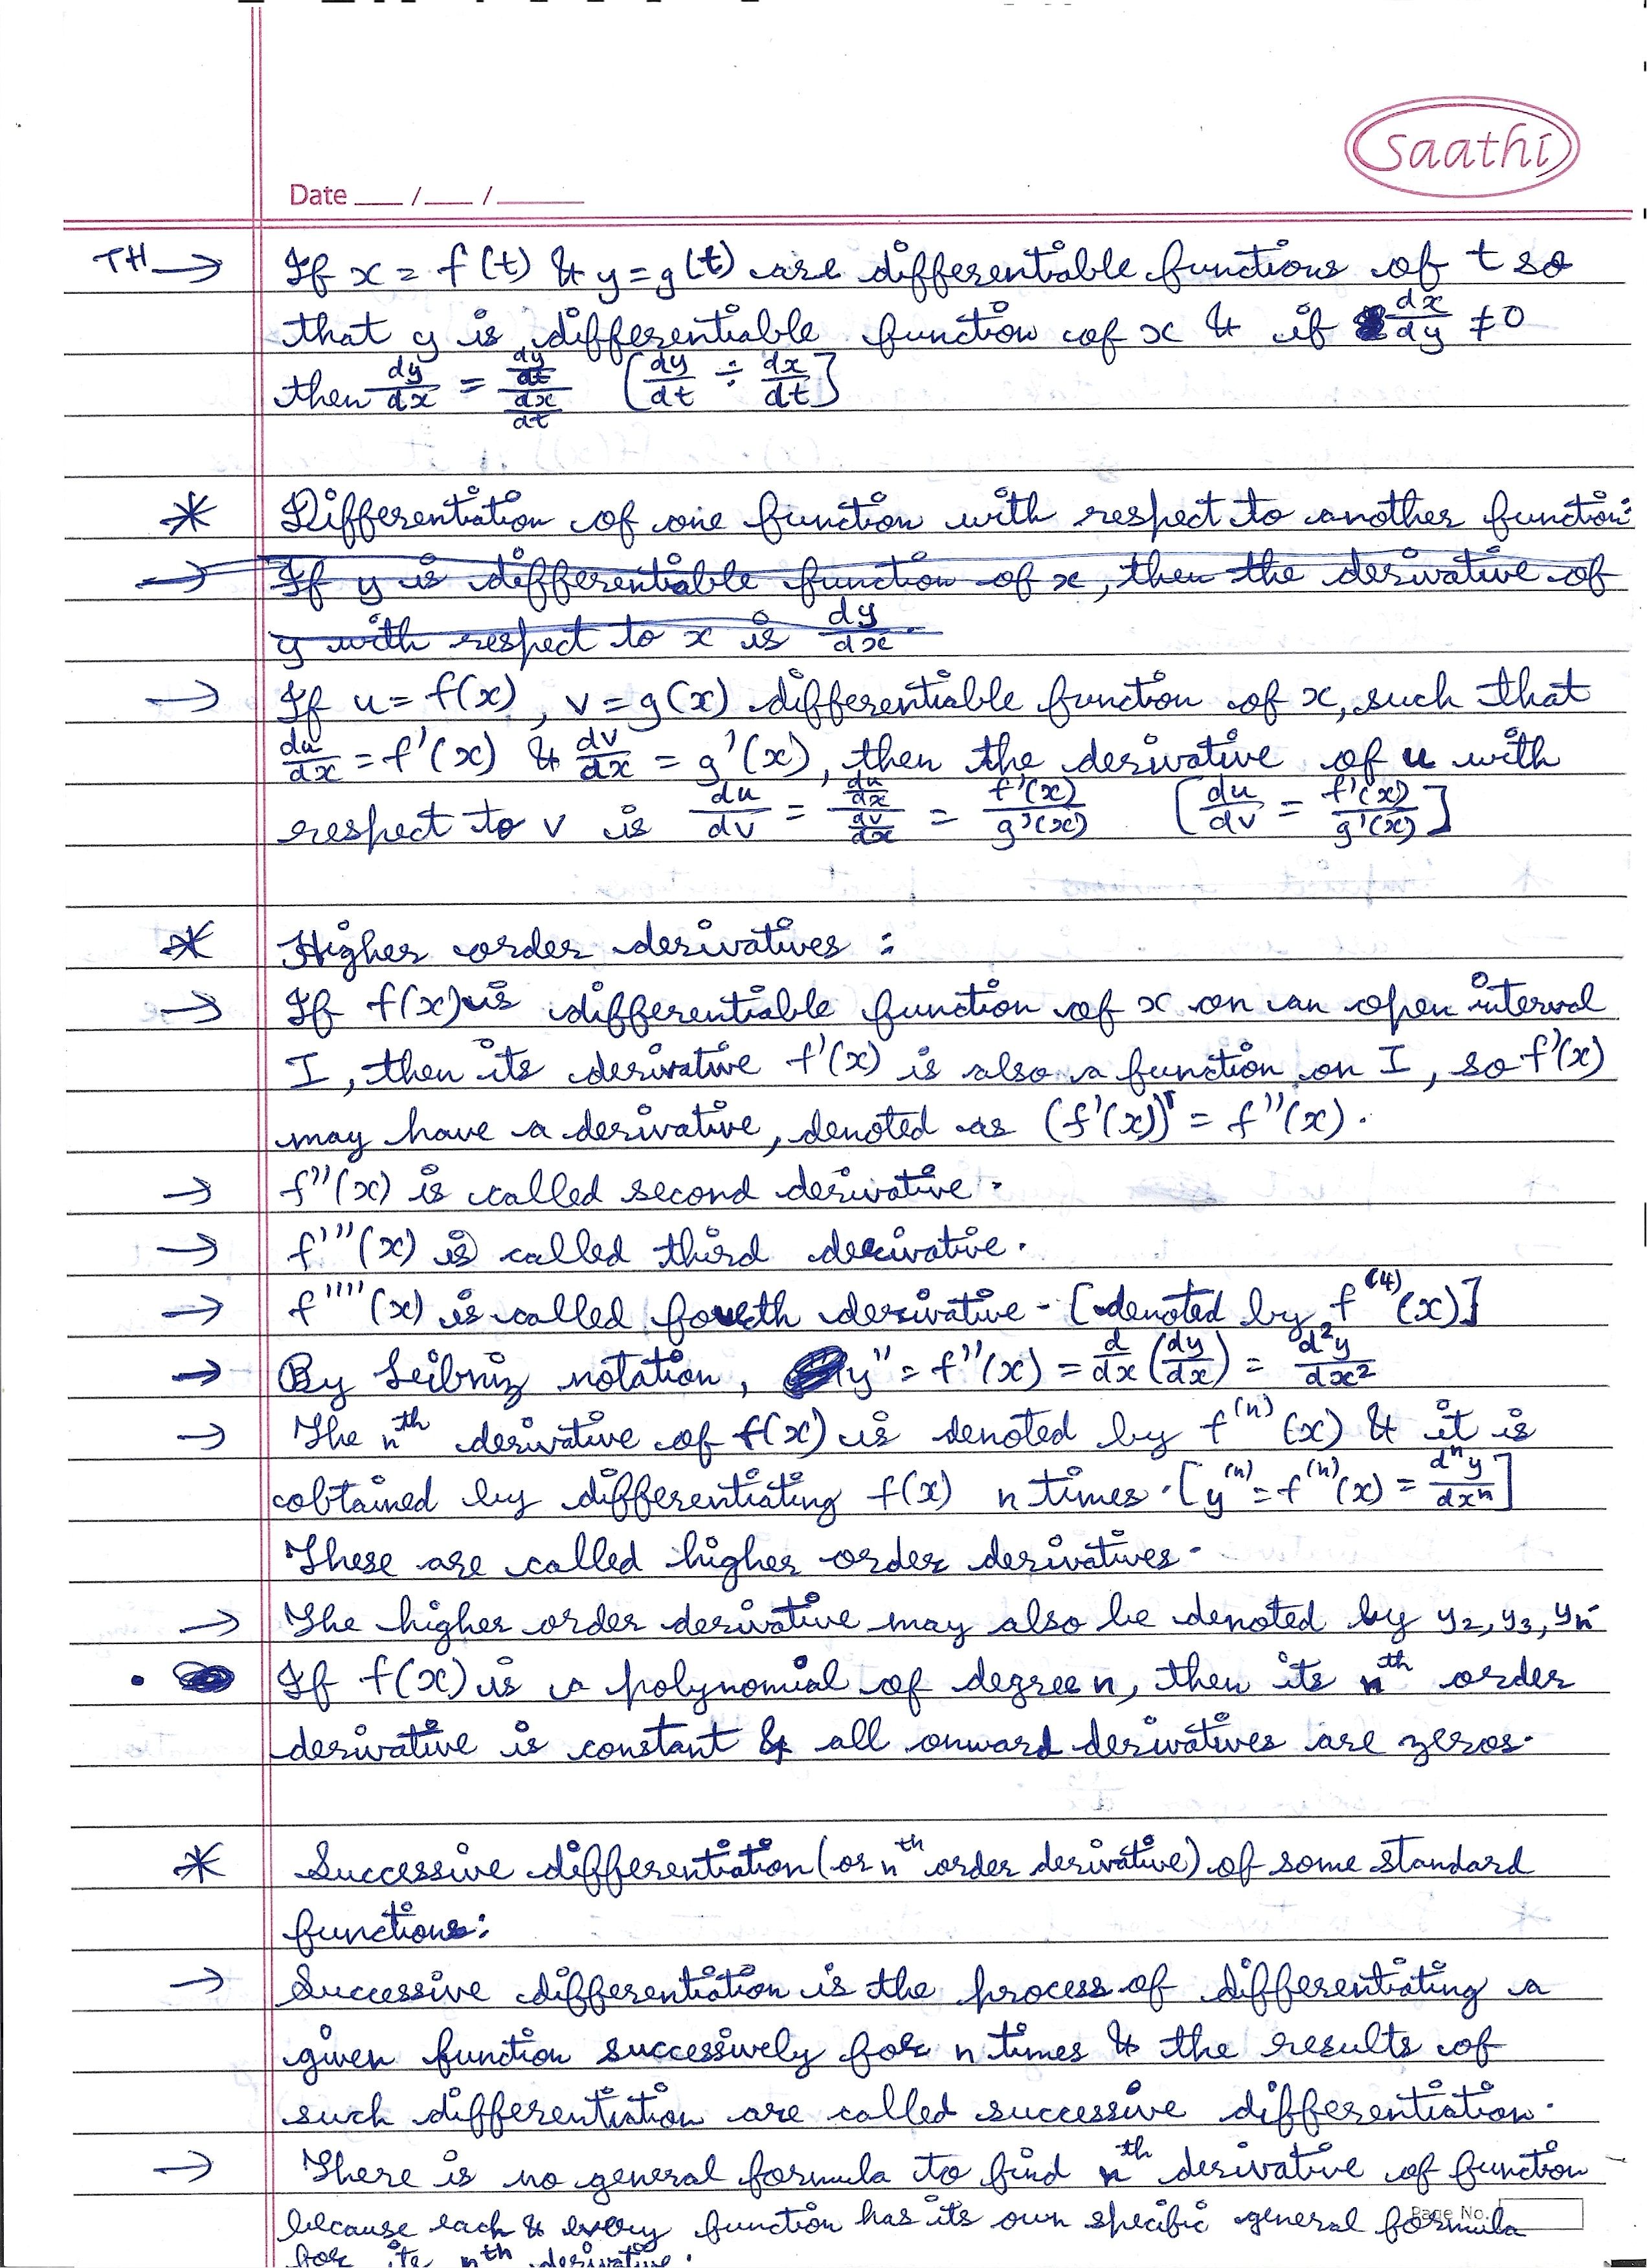 saathi
Date ___ / ___ / ______
TH → If x = f(t) & y = g(t) are differentiable functions of t so
that y is differentiable function of x & if dx/dy ≠ 0
then dy/dx = (dy/dt)/(dx/dt) [dy/dt ÷ dx/dt]
* Differentiation of one function with respect to another function:
→ If y is differentiable function of x, then the derivative of
y with respect to x is dy/dx.
→ If u = f(x), v = g(x) differentiable function of x, such that
du/dx = f'(x) & dv/dx = g'(x), then the derivative of u with
respect to v is du/dv = (du/dx)/(dv/dx) = f'(x)/g'(x) [du/dv = f'(x)/g'(x)]
* Higher order derivatives :
→ If f(x) is differentiable function of x on an open interval
I, then its derivative f'(x) is also a function on I, so f'(x)
may have a derivative, denoted as (f'(x))' = f''(x).
→ f''(x) is called second derivative.
→ f'''(x) is called third derivative.
→ f''''(x) is called fourth derivative. [denoted by f⁽⁴⁾(x)]
→ By Leibniz notation, y'' = f''(x) = d/dx (dy/dx) = d²y/dx²
→ The nᵗʰ derivative of f(x) is denoted by f⁽ⁿ⁾(x) & it is
obtained by differentiating f(x) n times. [y⁽ⁿ⁾ = f⁽ⁿ⁾(x) = dⁿy/dxⁿ]
These are called higher order derivatives.
→ The higher order derivative may also be denoted by y₂, y₃, yₙ.
• If f(x) is a polynomial of degree n, then its nᵗʰ order
derivative is constant & all onward derivatives are zeros.
* Successive differentiation (or nᵗʰ order derivative) of some standard
functions:
→ Successive differentiation is the process of differentiating a
given function successively for n times & the results of
such differentiation are called successive differentiation.
→ There is no general formula to find nᵗʰ derivative of function
because each & every function has its own specific general formula
Page No.
for its nᵗʰ derivative.